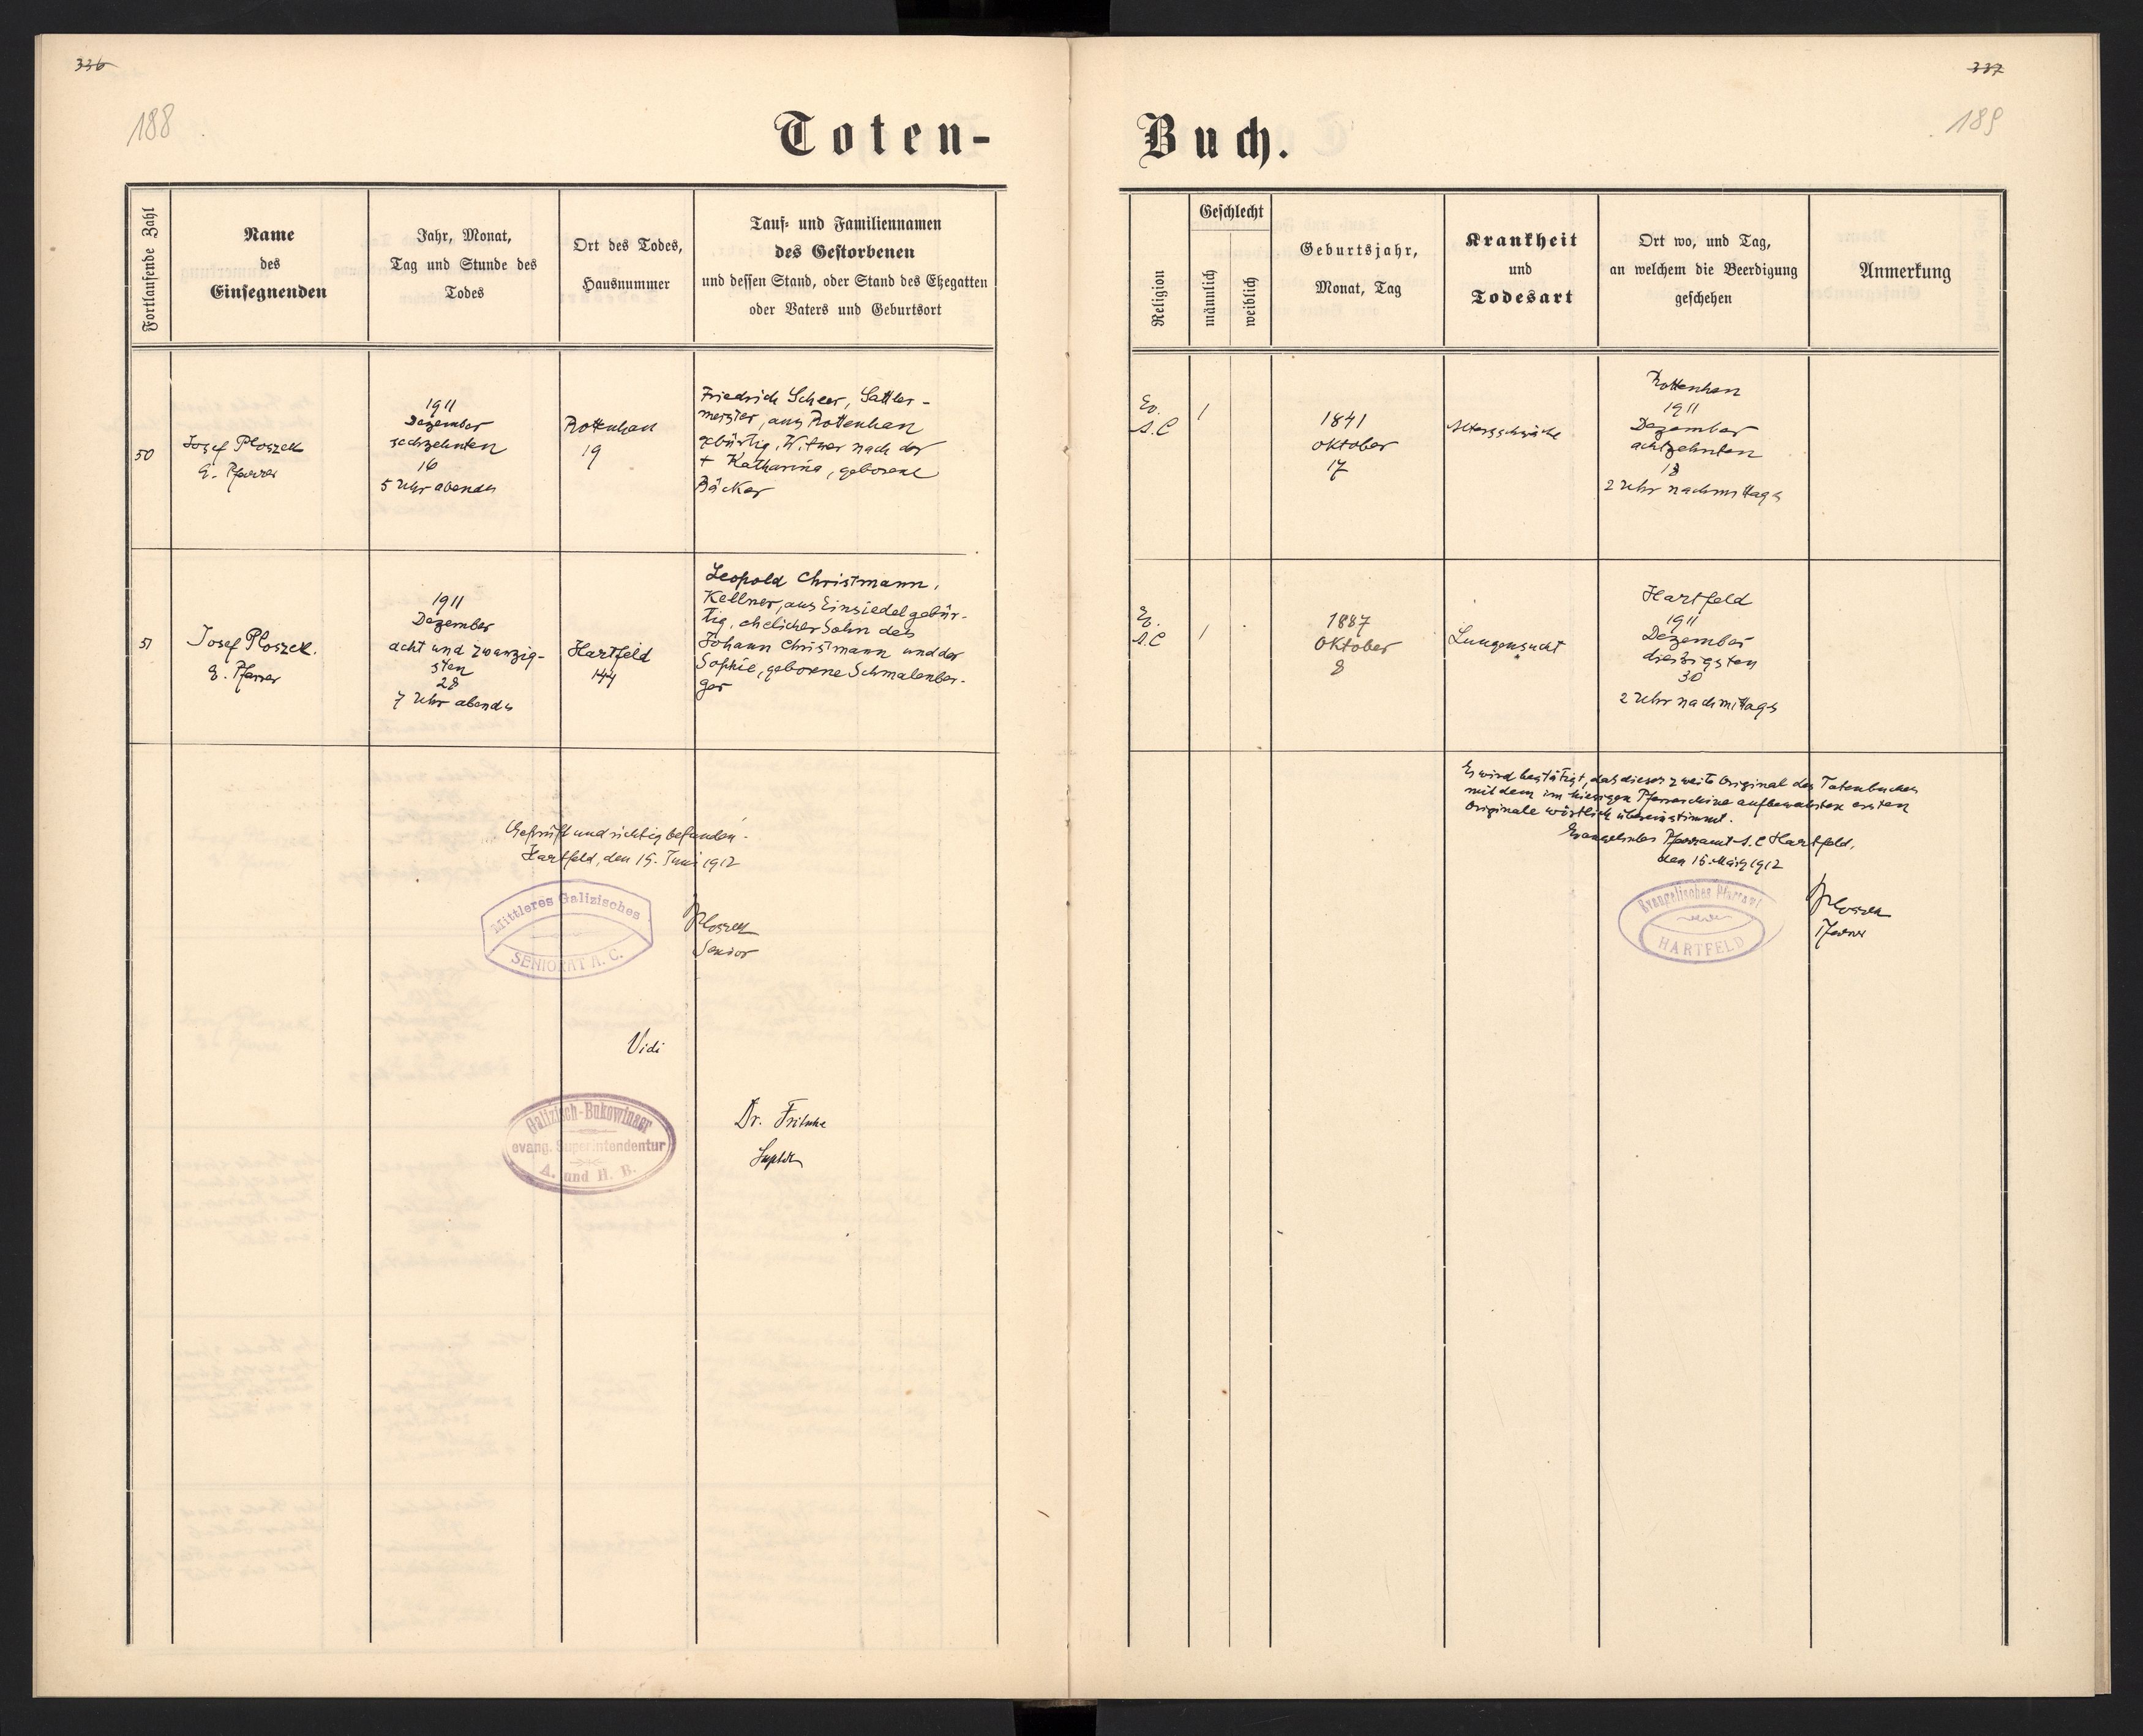 336
188
Toten-
Fortlaufende Zahl
Name
des
Einsegnenden
Jahr, Monat,
Tag und Stunde des
Todes
Ort des Todes,
Hausnummer
Tauf- und Familiennamen
des Gestorbenen
und dessen Stand, oder Stand des Ehegatten
oder Vaters und Geburtsort
50
Josef Ploszek
E. Pfarrer
1911
Dezember
sechzehnten
16
5 Uhr abends
Rottenhan
19
Friedrich Scheer, Sattler-
meister, aus Rottenhan
gebürtig, Witwer nach der
+ Katharina, geborene
Bäcker
51
Josef Ploszek.
E. Pfarrer
1911
Dezember
acht und zwanzig-
sten
28
7 Uhr abends
Hartfeld
144
Leopold Christmann,
Kellner, aus Einsiedel gebür-
tig, ehelicher Sohn des
Johann Christmann und der
Sophie, geborene Schmalenber-
ger
Geprüft und richtig befunden.
Hartfeld, den 15. Juni 1912
Mittleres Galizisches
SENIORAT A. C.
Ploszek
Senior
Vidi
Galizisch-Bukowinaer
evang. Superintendentur
A. und H. B.
Dr. Fritsche
Suptdt
337
189
Buch.
Religion
Geschlecht
männlich
weiblich
Geburtsjahr,
Monat, Tag
Krankheit
und
Todesart
Ort wo, und Tag,
an welchem die Beerdigung
geschehen
Anmerkung
Ev.
A.C
1
1841
Oktober
17
Altersschwäche
Rottenhan
1911
Dezember
achtzehnten
18
2 Uhr nachmittags
E.
A.C
1
1887
Oktober
8
Lungensucht
Hartfeld
1911
Dezember
dreisigsten
30
2 Uhr nachmittags
Es wird bestätigt, das dieser zweite Original des Totenbuches
mit dem im hiesigen Pfarrarchive aufbewahrten ersten
Originale wörtlich übereinstimmt.
Evangelisches Pfarramt A. C Hartfeld,
den 15. März 1912
Evangelisches Pfarramt
HARTFELD
Ploszek
Pfarrer